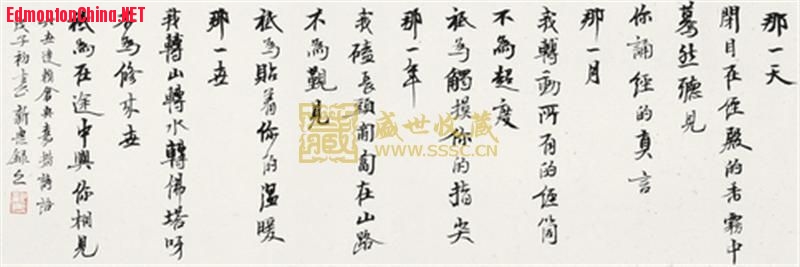 EdmontonChina.NET
那一天
閉目在經殿的香霧中
驀然聽見
你誦經的真言
那一月
我轉動所有的經筒
不為超度
祗為觸摸你的指尖
那一年
我磕長頭匍匐在山路
不為覲見
祗為貼着你的温暖
那一世
我轉山轉水轉佛塔呀
不為修來世
祗為在途中與你相見
六世達賴倉央嘉措詩
戊子初
錄之
盛世收藏
WWW.SSSC.CN